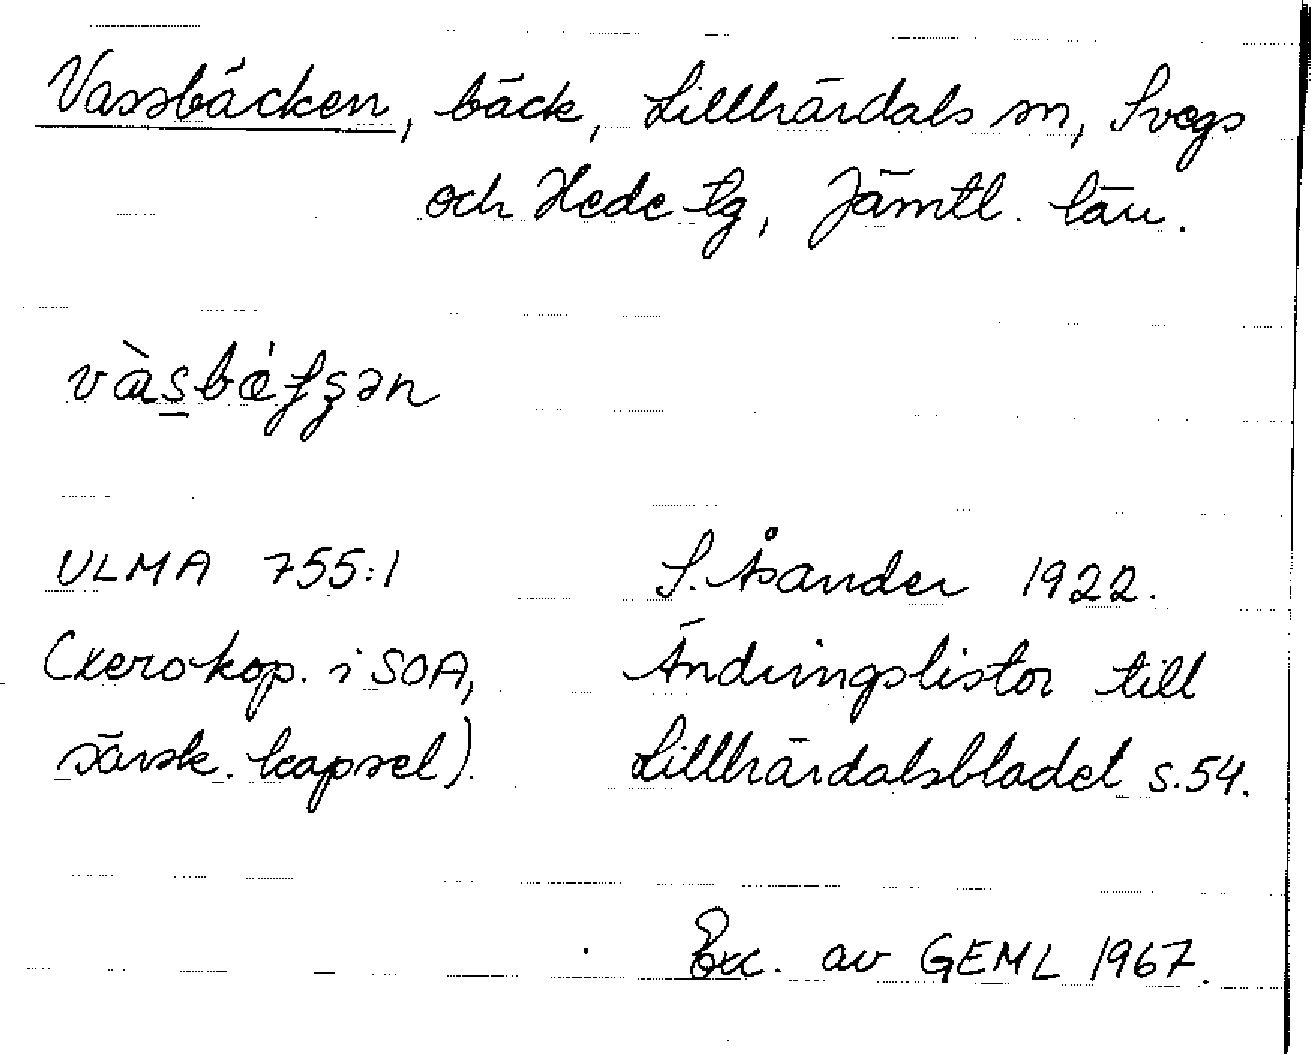 Vassbäcken, bäck, Lillhärdals sn, Svegs
och Hede tg, Jämtl. län.
ULMA 755:1
S. Åsander 1922.
(xerokop. i SOA,
Ändringslistor till
särsk. kapsel).
Lillhärdalsbladet s.54.
Exc. av GEML 1967.